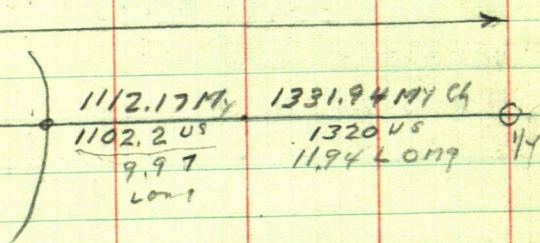 1112.17 My 1331.94 My Ch
1102.2 US 1320 US
9.97 11.94 Long
Long
1/4